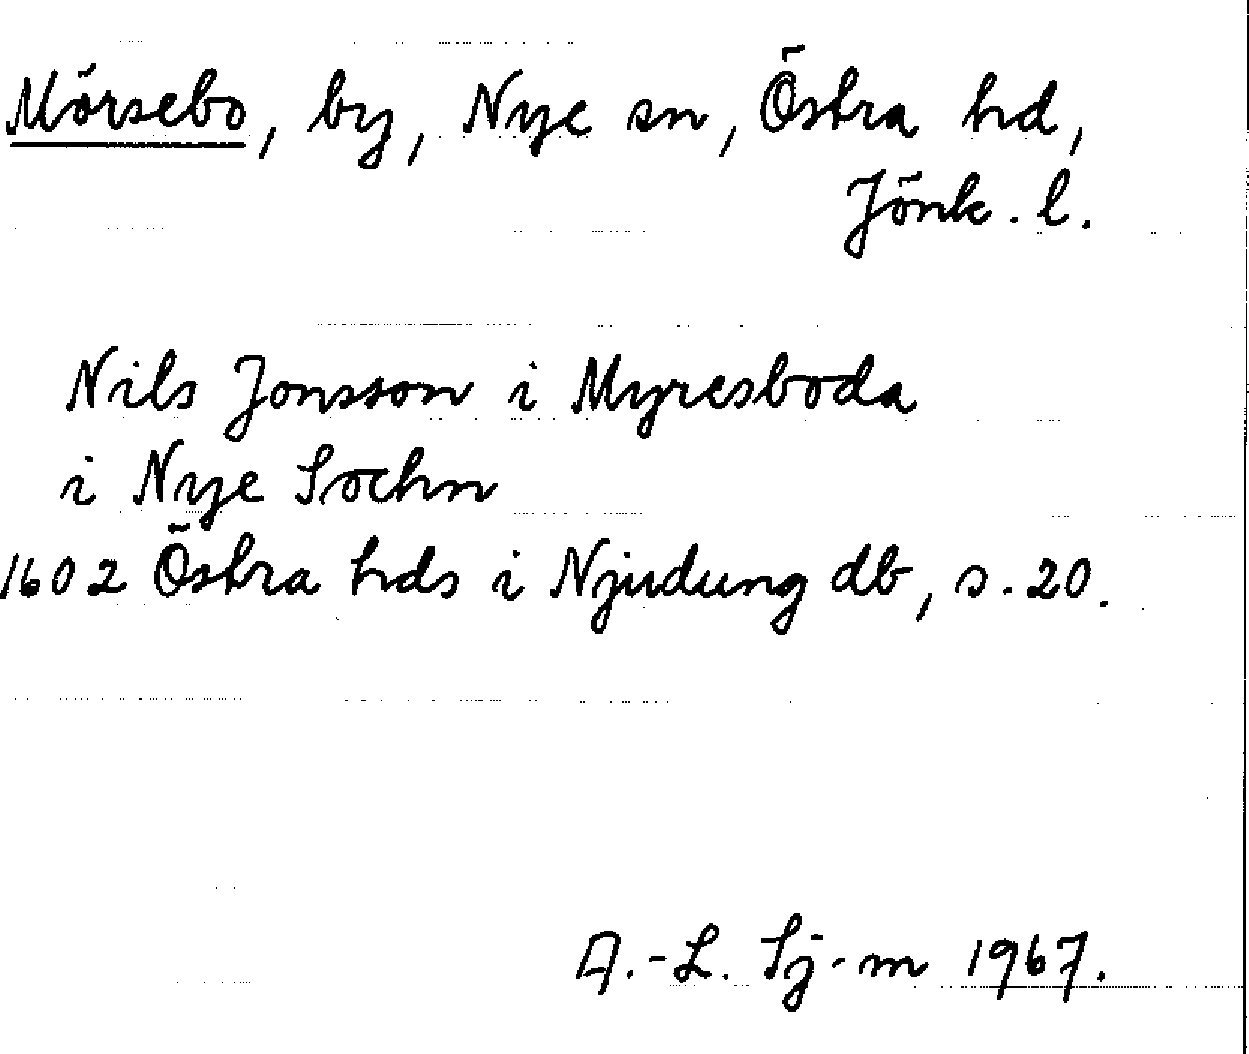 Mörsebo, by, Nye sn, Östra hd,
Jönk. l.
Nils Jonsson i Myresboda
i Nye Sochn
1602 Östra hds i Njudung db, s. 20.
A.-L. Sj-m 1967.